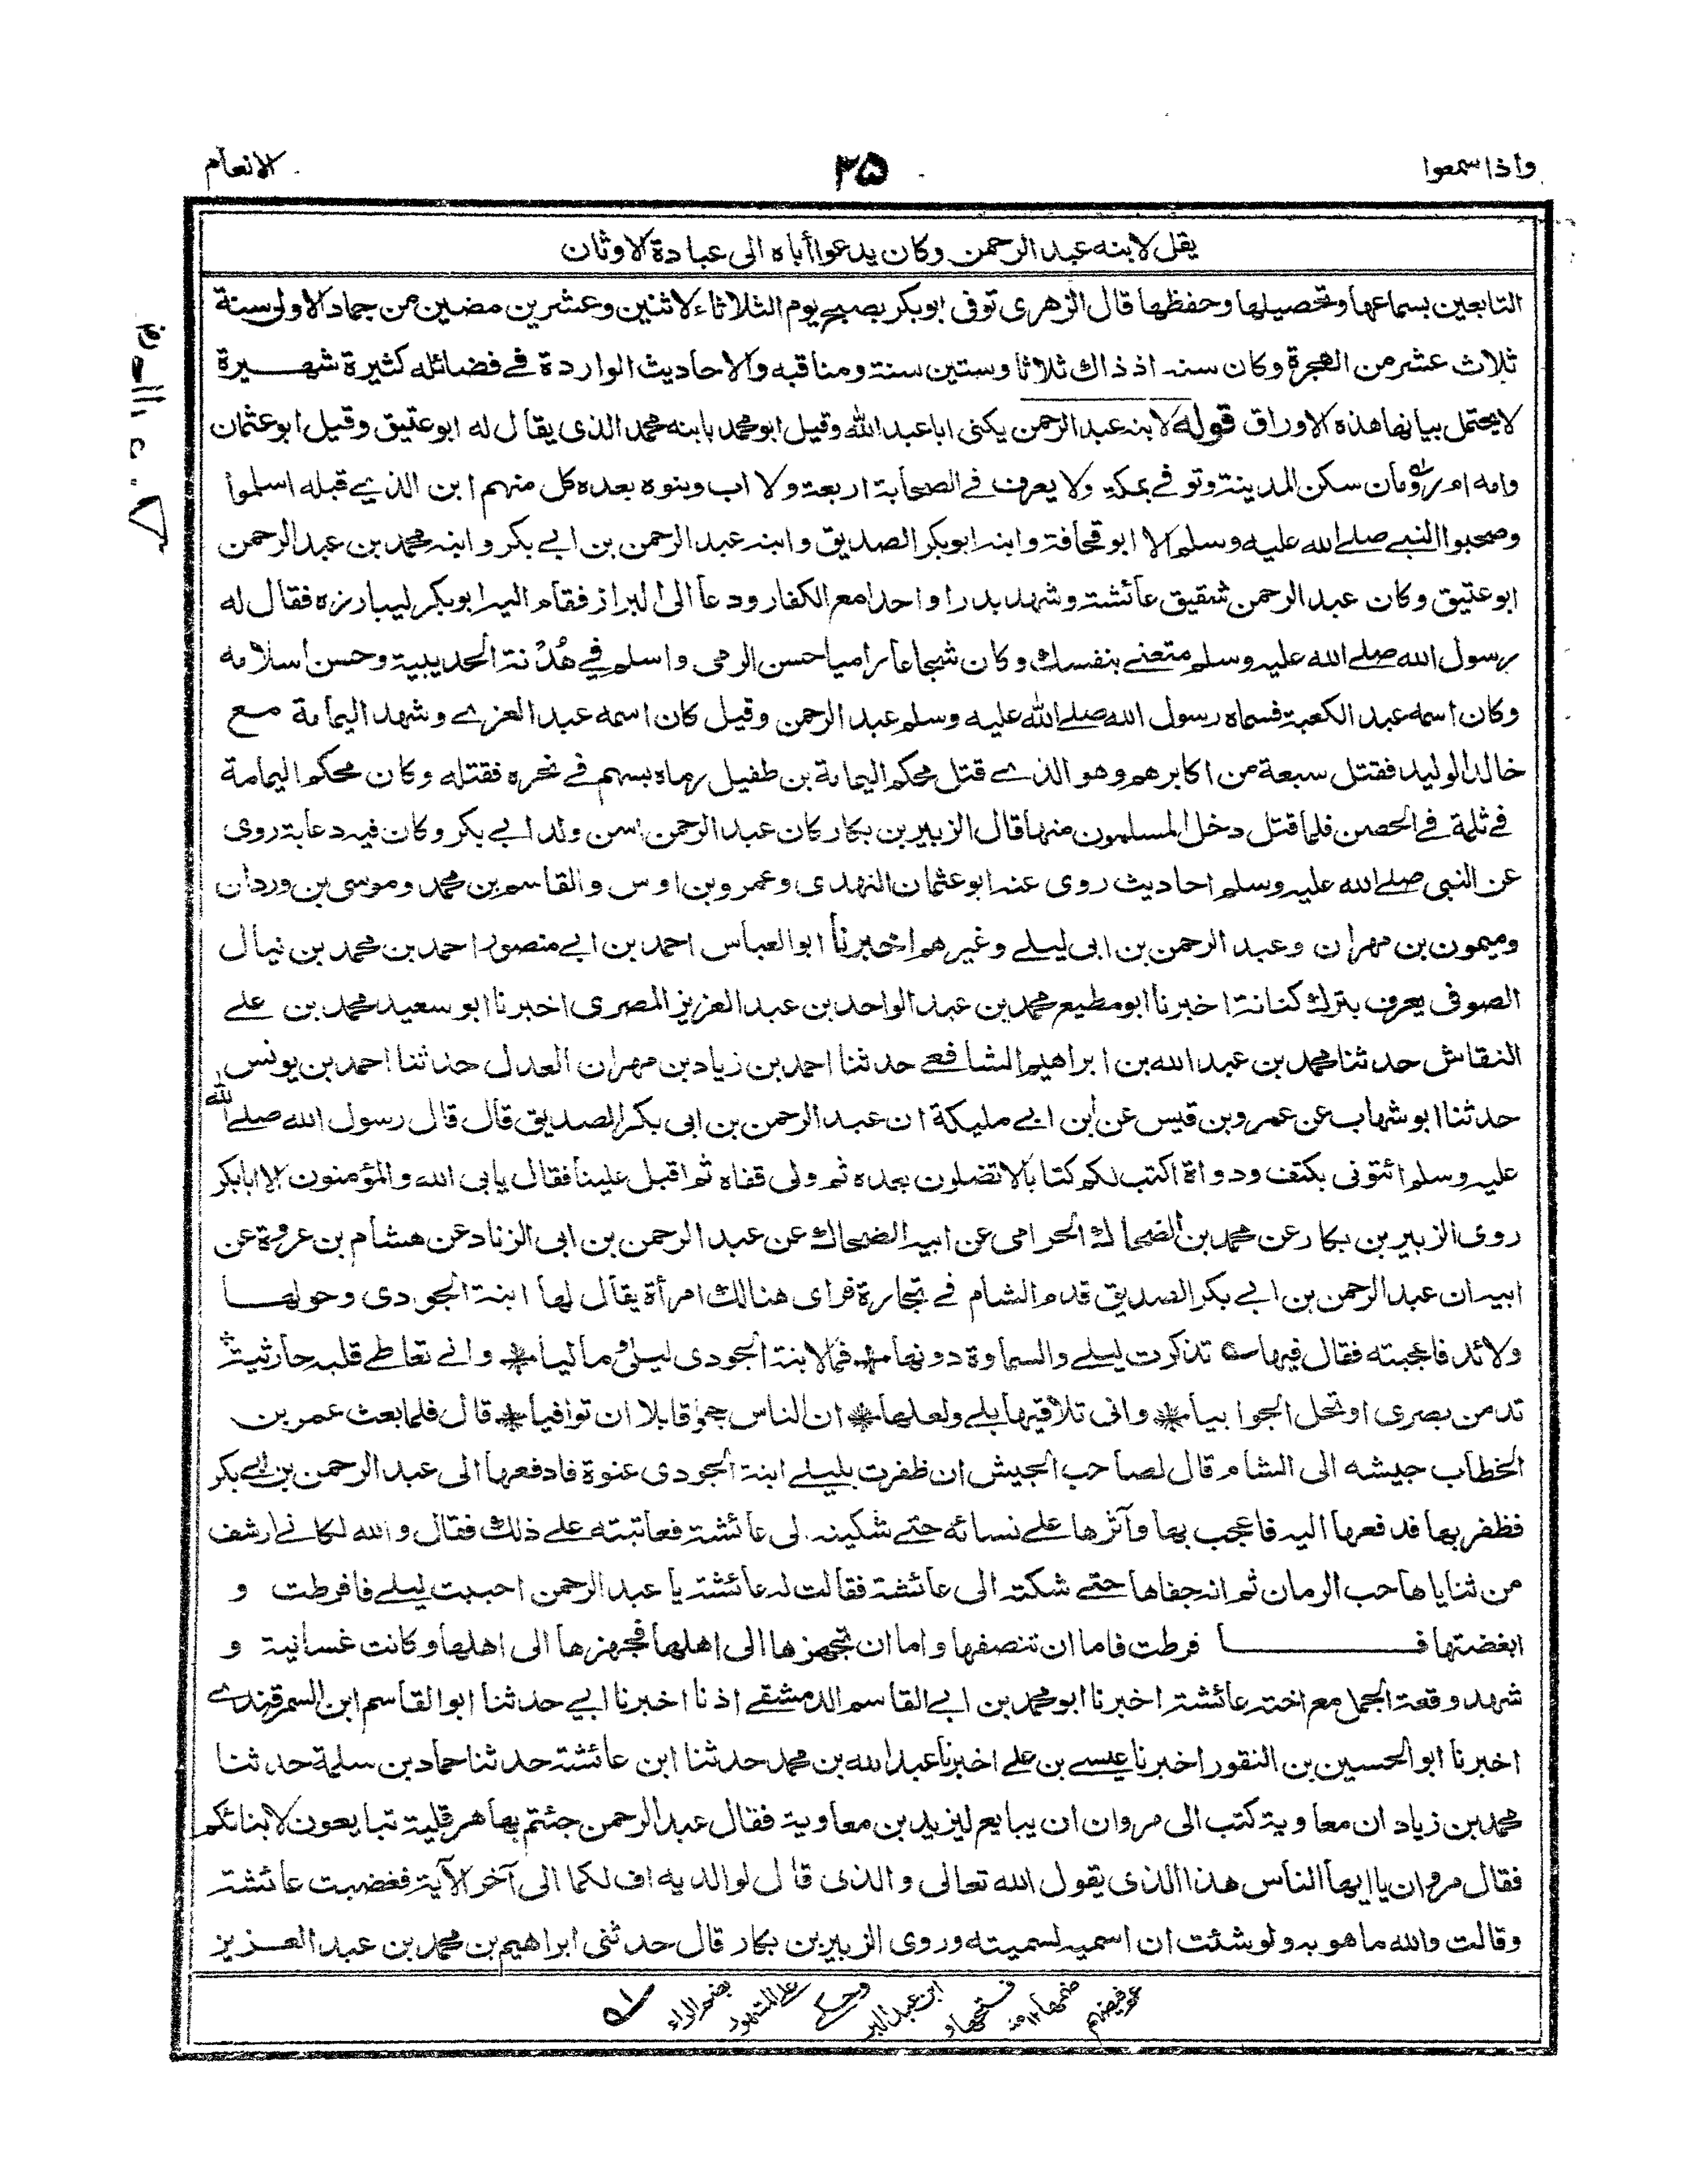 واذا سمعوا
٢٥
الانعام
يقل لابنه عبد الرحمن وكان يدعوا أباه الى عبادة الاوثان
التابعين بسماعها وتحصيلها وحفظها قال الزهرى توفى ابو بكر يوم الثلاثاء لاثنين وعشرين مضين من جماد الاولى سنة
ثلاث عشر من الهجرة وكان سنه اذ ذاك ثلاثا وستين سنة ومناقبه والاحاديث الواردة فى فضائله كثيرة شهيرة
لا يحتمل بيانها هذه الاوراق قوله لابنه عبد الرحمن يكنى ابا عبد الله وقيل ابو محمد بابنه محمد الذى يقال له ابو عتيق وقيل ابو عثمان
وامه ام رومان سكن المدينة وتوفى بمكة ولا يعرف فى الصحابة اربعة ولا اب وبنوه بعده كل منهم ابن الذى قبله اسلموا
وصحبوا النبى صلى الله عليه وسلم الا ابو قحافة وابنه ابو بكر الصديق وابنه عبد الرحمن بن ابى بكر وابنه محمد بن عبد الرحمن
ابو عتيق وكان عبد الرحمن شقيق عائشة وشهد بدرا واحدا مع الكفار ودعا الى البراز فقام اليه ابو بكر ليبارزه فقال له
رسول الله صلى الله عليه وسلم متعنى بنفسك وكان شجاعا راميا حسن الرمى واسلم فى هُدْنة الحديبية وحسن اسلامه
وكان اسمه عبد الكعبة فسماه رسول الله صلى الله عليه وسلم عبد الرحمن وقيل كان اسمه عبد العزى وشهد اليمامة مع
خالد الوليد فقتل سبعة من اكابرهم وهو الذى قتل محكم اليمامة بن طفيل رماه بسهم فى نحره فقتله وكان محكم اليمامة
فى ثلمة فى الحصن فلما قتل دخل المسلمون منها قال الزبير بن بكار كان عبد الرحمن اسن ولد ابى بكر وكان فيه دعابة روى
عن النبى صلى الله عليه وسلم احاديث روى عنه ابو عثمان النهدى وعمرو بن اوس والقاسم بن محمد وموسى بن وردان
وميمون بن مهران وعبد الرحمن بن ابى ليلى وغيرهم اخبرنا ابو العباس احمد بن ابى منصور احمد بن محمد بن نيال
الصوفى يعرف بترك كنانة اخبرنا ابو مطيع محمد بن عبد الواحد بن عبد العزيز المصرى اخبرنا ابو سعيد محمد بن على
النقاش حدثنا محمد بن عبد الله بن ابراهيم الشافعى حدثنا احمد بن زياد بن مهران العدل حدثنا احمد بن يونس
حدثنا ابو شهاب عن عمرو بن قيس عن ابن ابى مليكة ان عبد الرحمن بن ابى بكر الصديق قال قال رسول الله صلى الله
عليه وسلم ائتونى بكتف ودواة اكتب لكم كتابا لا تضلون بعده ثم ولى قفاه ثم اقبل علينا فقال يابى الله والمؤمنون الا ابابكر
روى الزبير بن بكار عن محمد بن الضحاك الحرامى عن ابيه الضحاك عن عبد الرحمن بن ابى الزناد عن هشام بن عروة عن
ابيه ان عبد الرحمن بن ابى بكر الصديق قدم الشام فى تجارة فراى هنالك امرأة يقال لها ابنة الجودى وحولها
ولائد فاعجبته فقال فيها تذكرت ليلى والسماوة دونها * فما لابنة الجودى ليلى وماليا * وانى تعاطى قلبه حارثية
تدمن بصرى او تحل الجوابيا * وانى تلاقيها بلى ولعلها * ان الناس حجوا قابلا ان توافيا * قال فلما بعث عمر بن
الخطاب جيشه الى الشام قال لصاحب الجيش ان ظفرت بليلى ابنة الجودى عنوة فادفعها الى عبد الرحمن بن ابى بكر
فظفر بها فدفعها اليه فاعجب بها وآثرها على نسائه حتى شكينه لى عائشة فعاتبته على ذلك فقال والله لكانى ارشف
من ثناياها حب الرمان ثم انه جفاها حتى شكته الى عائشة فقالت له عائشة يا عبد الرحمن احببت ليلى فافرطت و
ابغضتها فافرطت فاما ان تنصفها واما ان تجهزها الى اهلها فجهزها الى اهلها وكانت غسانية و
شهد وقعة الجمل مع اخته عائشة اخبرنا ابو محمد بن ابى القاسم الدمشقى اذنا اخبرنا ابى حدثنا ابو القاسم ابن السمرقندى
اخبرنا ابو الحسين بن النقور اخبرنا عيسى بن على اخبرنا عبد الله بن محمد حدثنا ابن عائشة حدثنا حماد بن سلمة حدثنا
محمد بن زياد ان معاوية كتب الى مروان ان يبايع ليزيد بن معاوية فقال عبد الرحمن جئتم بها هرقلية تبايعون لابنائكم
فقال مروان يا ايها الناس هذا الذى يقول الله تعالى والذى قال لوالديه اف لكما الى آخر الآية فغضبت عائشة
وقالت والله ما هو به ولو شئت ان اسميه لسميته وروى الزبير بن بكار قال حدثنى ابراهيم بن محمد بن عبد العزيز
ابن عبد البر وحكى على المشهور بضم الراء